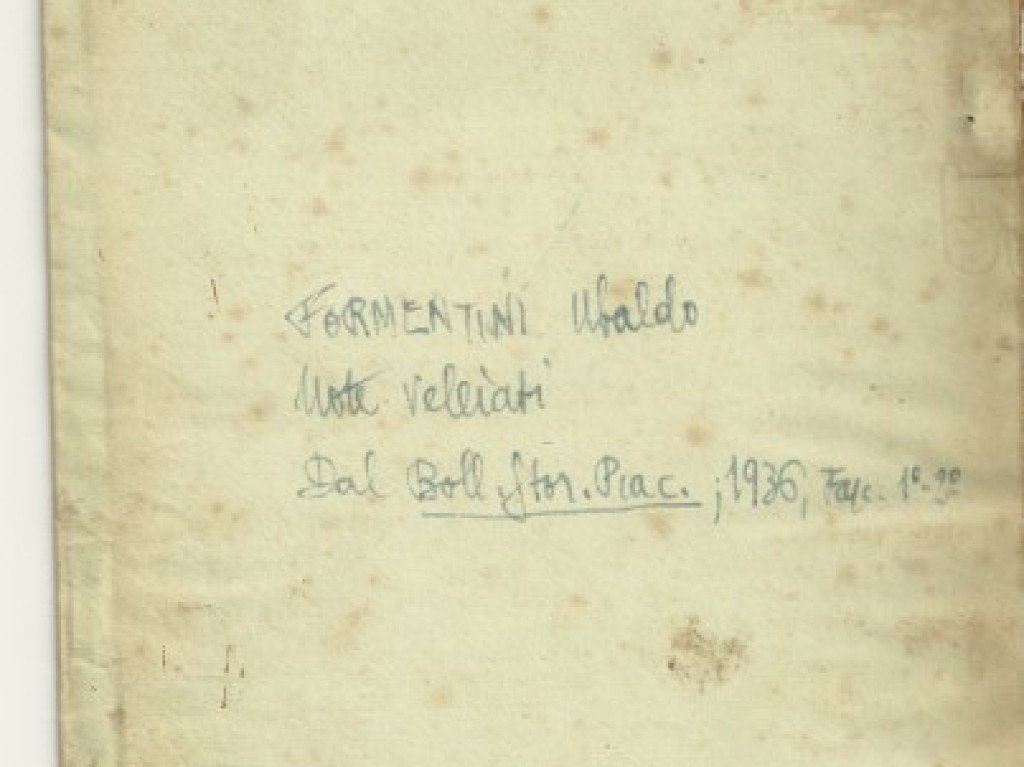 FORMENTINI Ubaldo
Note velleiati
Dal Boll. Stor. Piac.; 1936, Fasc. 1º-2º